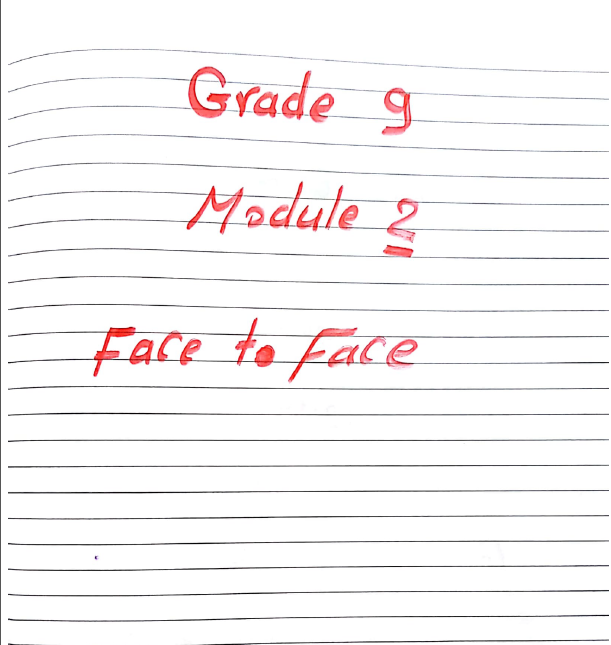 Grade 9
Module 2
Face to Face